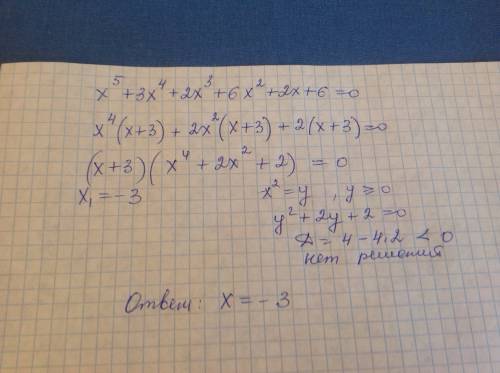 x⁵ + 3x⁴ + 2x³ + 6x² + 2x + 6 = 0
x⁴(x+3) + 2x²(x+3) + 2(x+3) = 0
(x+3)(x⁴ + 2x² + 2) = 0
x₁ = -3
x² = y , y ⩾ 0
y² + 2y + 2 = 0
D = 4 - 4·2 < 0
нет решений
Ответ: x = -3